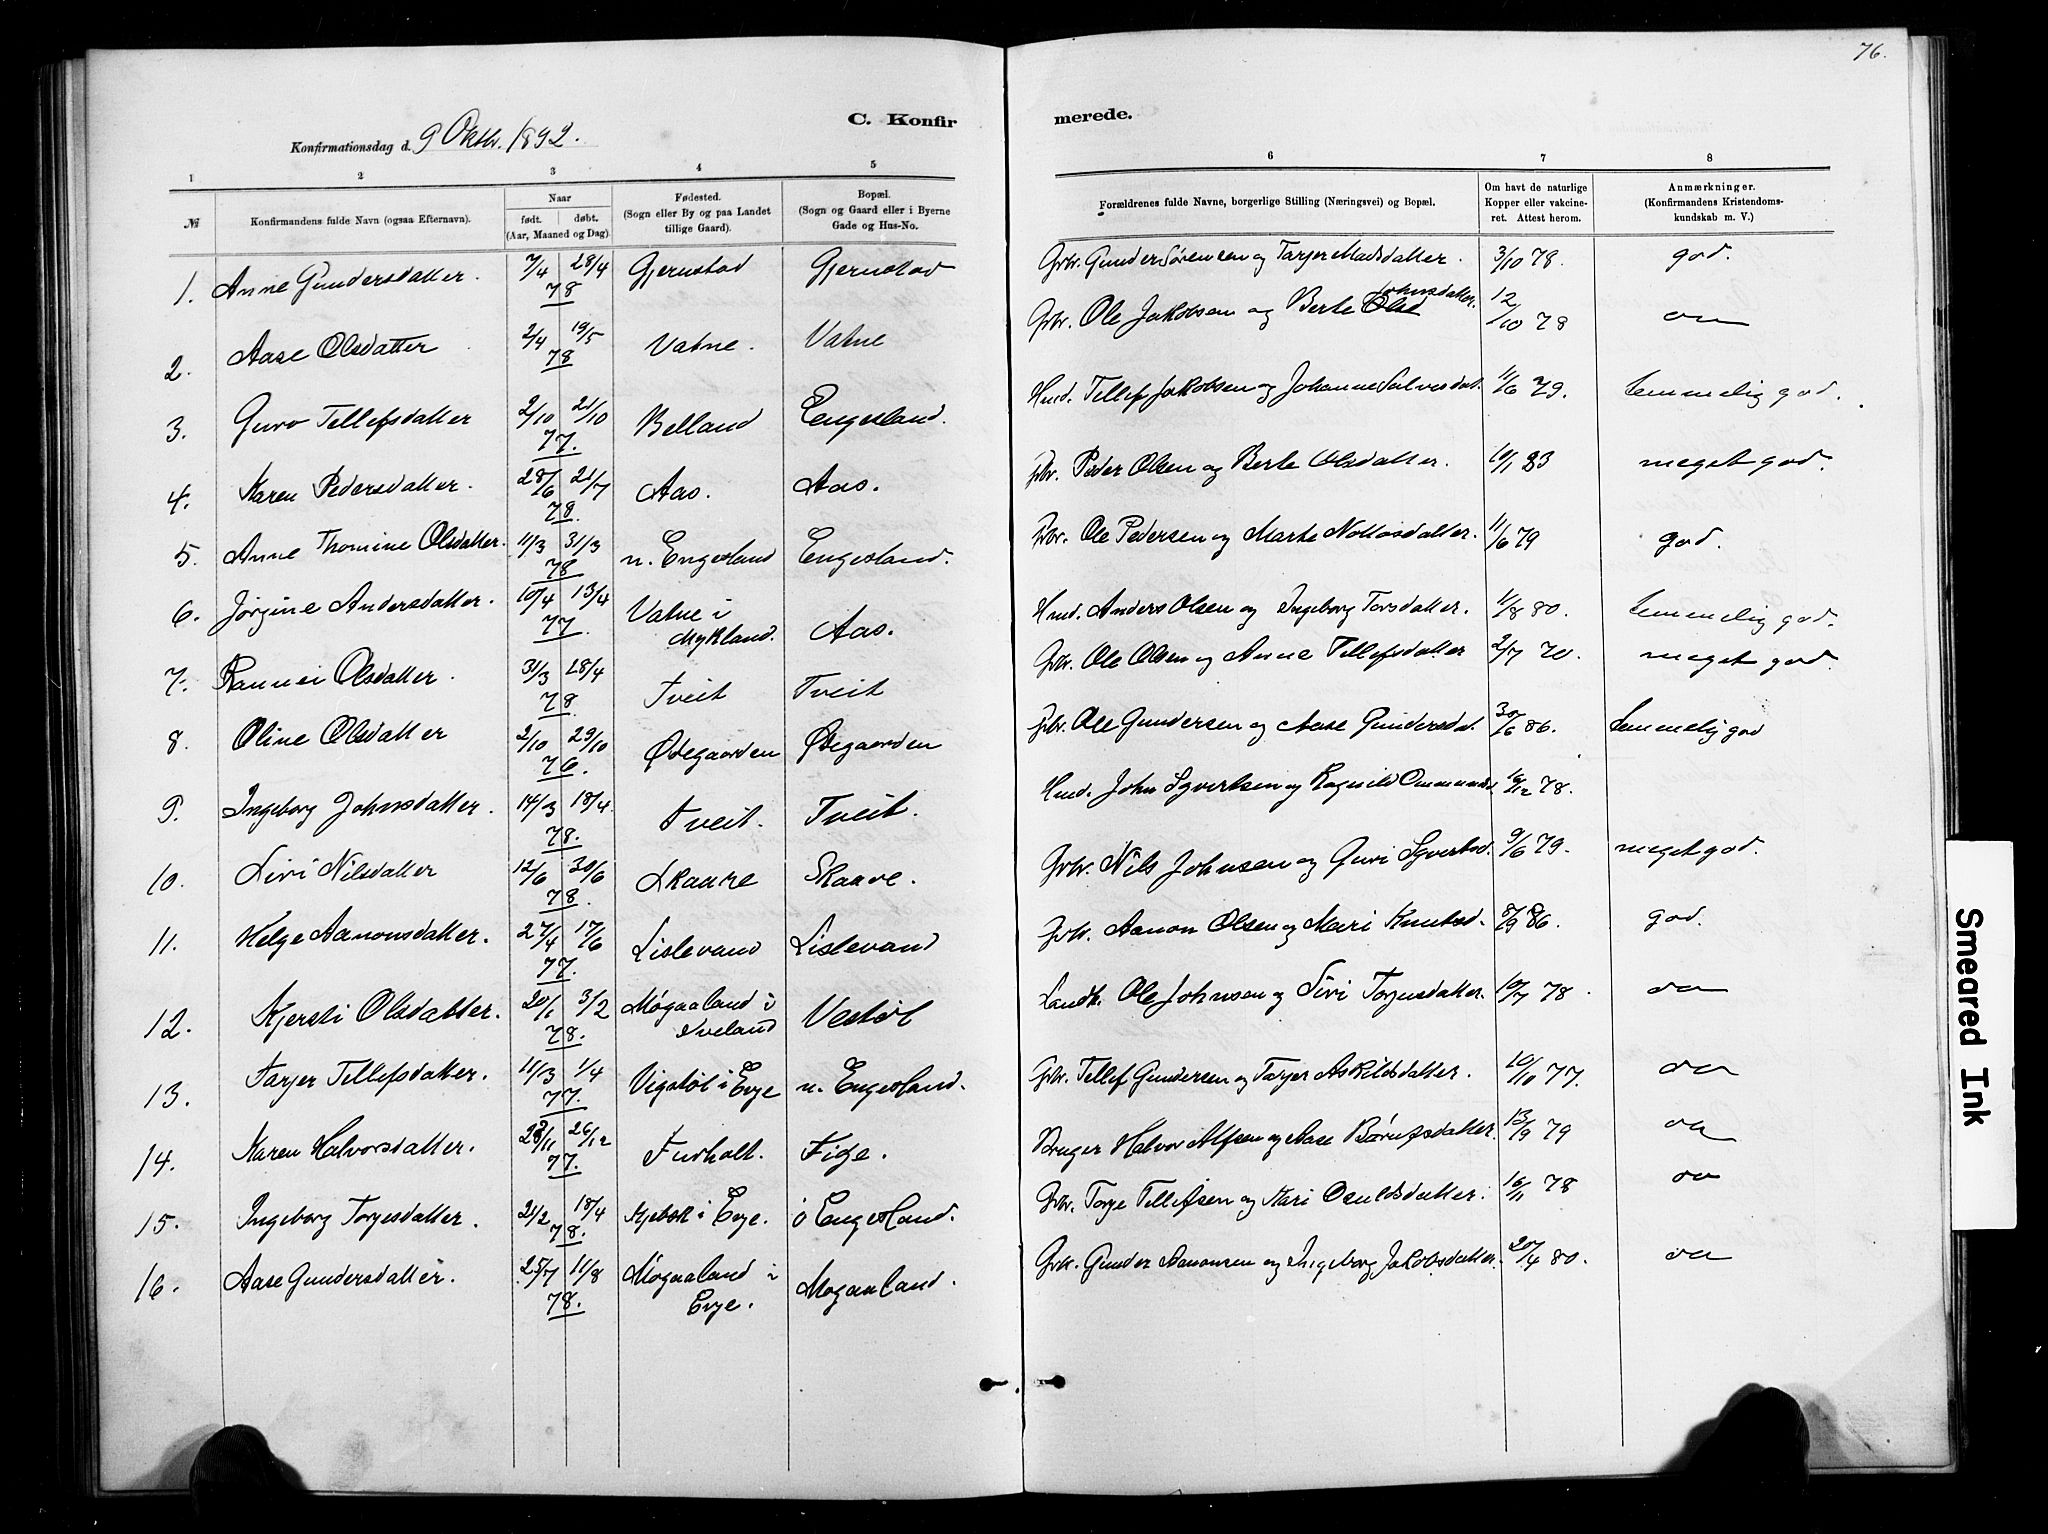 76.
C. Konfirmerede.
Konfirmationsdag d. 9 Oktbr. 1892.
1 2 3 4 5 6 7 8
№
Konfirmandens fulde Navn (ogsaa Efternavn).
Naar
født. døbt.
(Aar, Maaned og Dag).
Fødested.
(Sogn eller By og paa Landet
tillige Gaard).
Bopæl.
(Sogn og Gaard eller i Byerne
Gade og Hus-No.
Forældrenes fulde Navne, borgerlige Stilling (Næringsvei) og Bopæl.
Om havt de naturlige
Kopper eller vakcine-
ret. Attest herom.
Anmærkninger.
(Konfirmandens Kristendoms-
kundskab m. V.)
1. Anne Gundersdatter. 7/4 28/4 78 Gjerustad Gjerustad Grbr. Gunder Sørensen og Tarjer Madsdatter. 3/10 78. god.
2. Aase Olsdatter 2/4 19/5 78 Vatne. Vatne Grbr. Ole Jakobsen og Berte Johnsdatter. 12/10 78
3. Guro Tellefsdatter 2/10 21/10 77. Belland Engesland. Hmd. Tellef Jakobsen og Johanne Salvesdat. 11/6 79. temmelig god.
4. Karen Pedersdatter. 28/6 21/7 78. Aas. Aas. Gbr. Peder Olsen og Berte Olsdatter. 10/1 83 meget god.
5. Anne Thomine Olsdatter. 11/3 31/3 78 n. Engesland Engesland. Gbr. Ole Pedersen og Marte Nottosdatter. 11/6 79 god.
6. Jørgine Andersdatter. 10/4 13/4 77. Vatne i Mykland. Aas. Hmd. Anders Olsen og Ingeborg Torsdatter. 11/8 80. temmelig god.
7. Rannei Olsdatter. 31/3 28/4 78 Tveit Tveit Gbr. Ole Olsen og Anne Tellefsdatter 2/7 70. meget god.
8. Oline Olsdatter 2/10 29/10 76. Ødegaarden Ødegaarden Gbr. Ole Gundersen og Aase Gundersdat. 30/6 86. temmelig god
9. Ingeborg Johnsdatter. 14/3 18/4. 78. Tveit. Tveit. Hmd. John Syvertsen og Ragnild 16/12 78.
10. Siri Nilsdatter 12/6 30/6 78. Skaare Skaare. Grbr. Nils Johnsen og Guri Syvertsd. 9/6 79. meget god.
11. Helge Aanonsdatter. 27/4 17/6 77. Lislevand Lislevand Grbr. Aanon Olsen og Mari Knutsd. 8/9 86. god.
12. Kjersti Olsdatter. 20/1 3/2 78. Møgaaland i Iveland Vestøl Landh. Ole Johnsen og Siri Torjusdatter. 10/7 78.
13. Tarjer Tellefsdatter. 11/3 1/4 77. Vigstøl i Evje n. Engesland. Grbr. Tellef Gundersen og Tarjer Askildsdatter. 10/10 77.
14. Karen Halvorsdatter. 23/11 26/12 77. Furholt. Fige. Bruger Halvor Alfsen og Aase Børufsdatter. 13/9 79
15. Ingeborg Torjesdatter. 21/2 18/4 78. i Evje. ö Engesland. Grbr. Torje Tellefsen og Mari Osuldsdatter. 16/11 78
16. Aase Gundersdatter. 25/7 11/8 78. Møgaaland i Evje. Mogaaland. Grbr. Gunder Aanonsen og Ingeborg Jakobsdatter. 20/4 80.
Smeared Ink